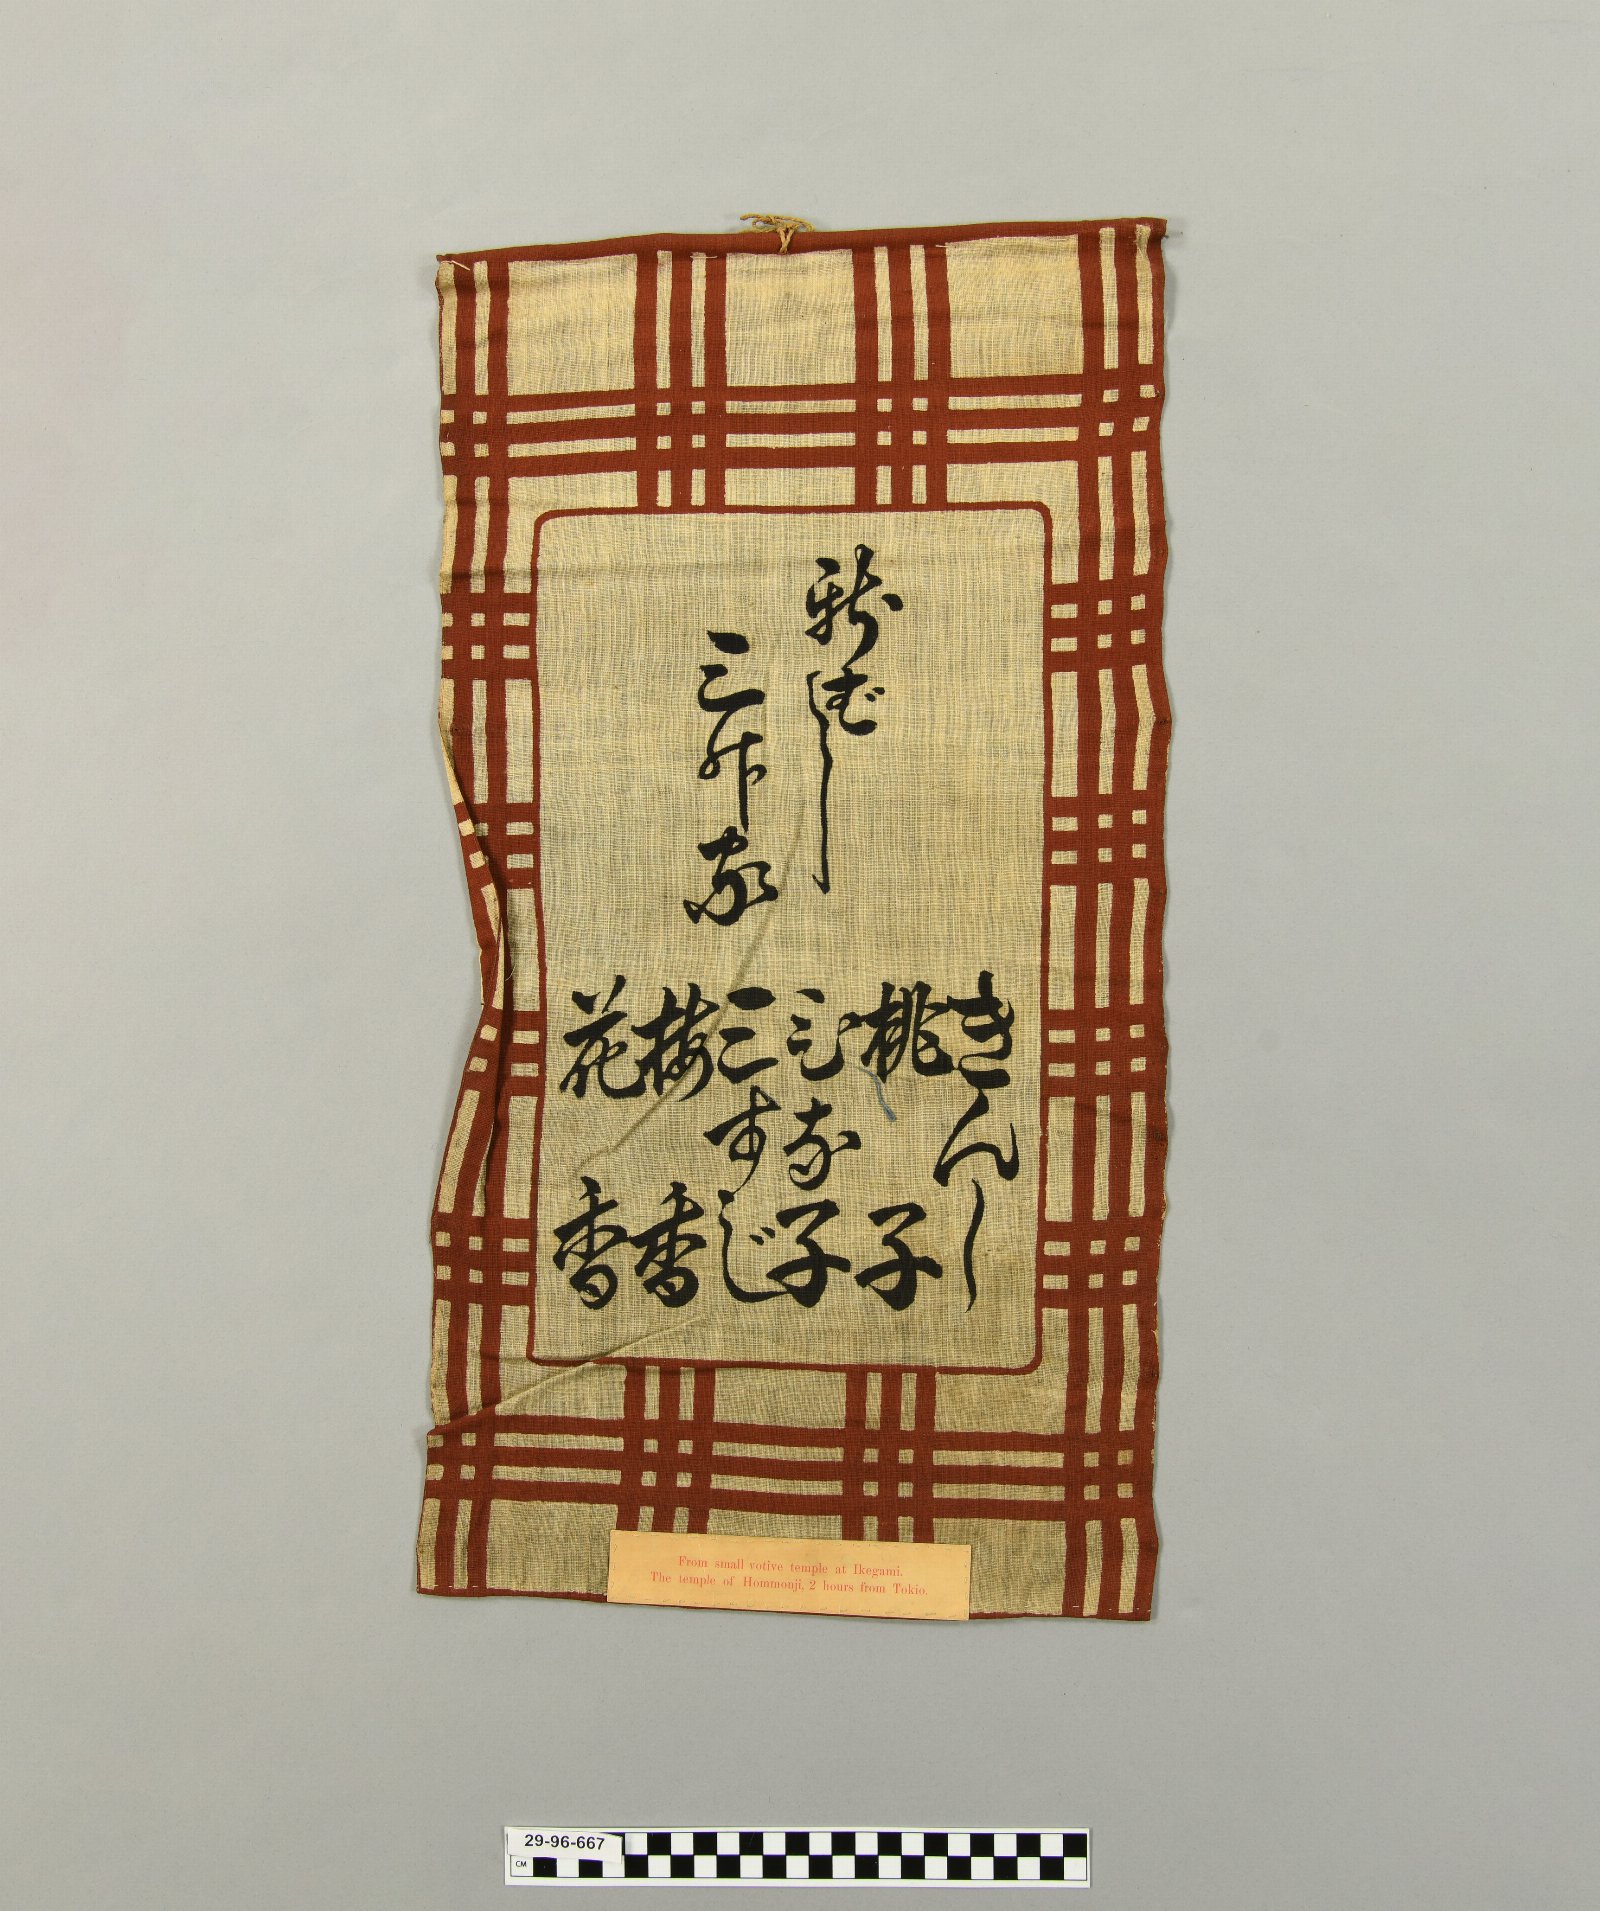 新ばし
三升家
きんし
桃子
ひな子
三すじ
梅香
花香
From small votive temple at Ikegami.
The temple of Hommonji, 2 hours from Tokio.
29-96-667
CM